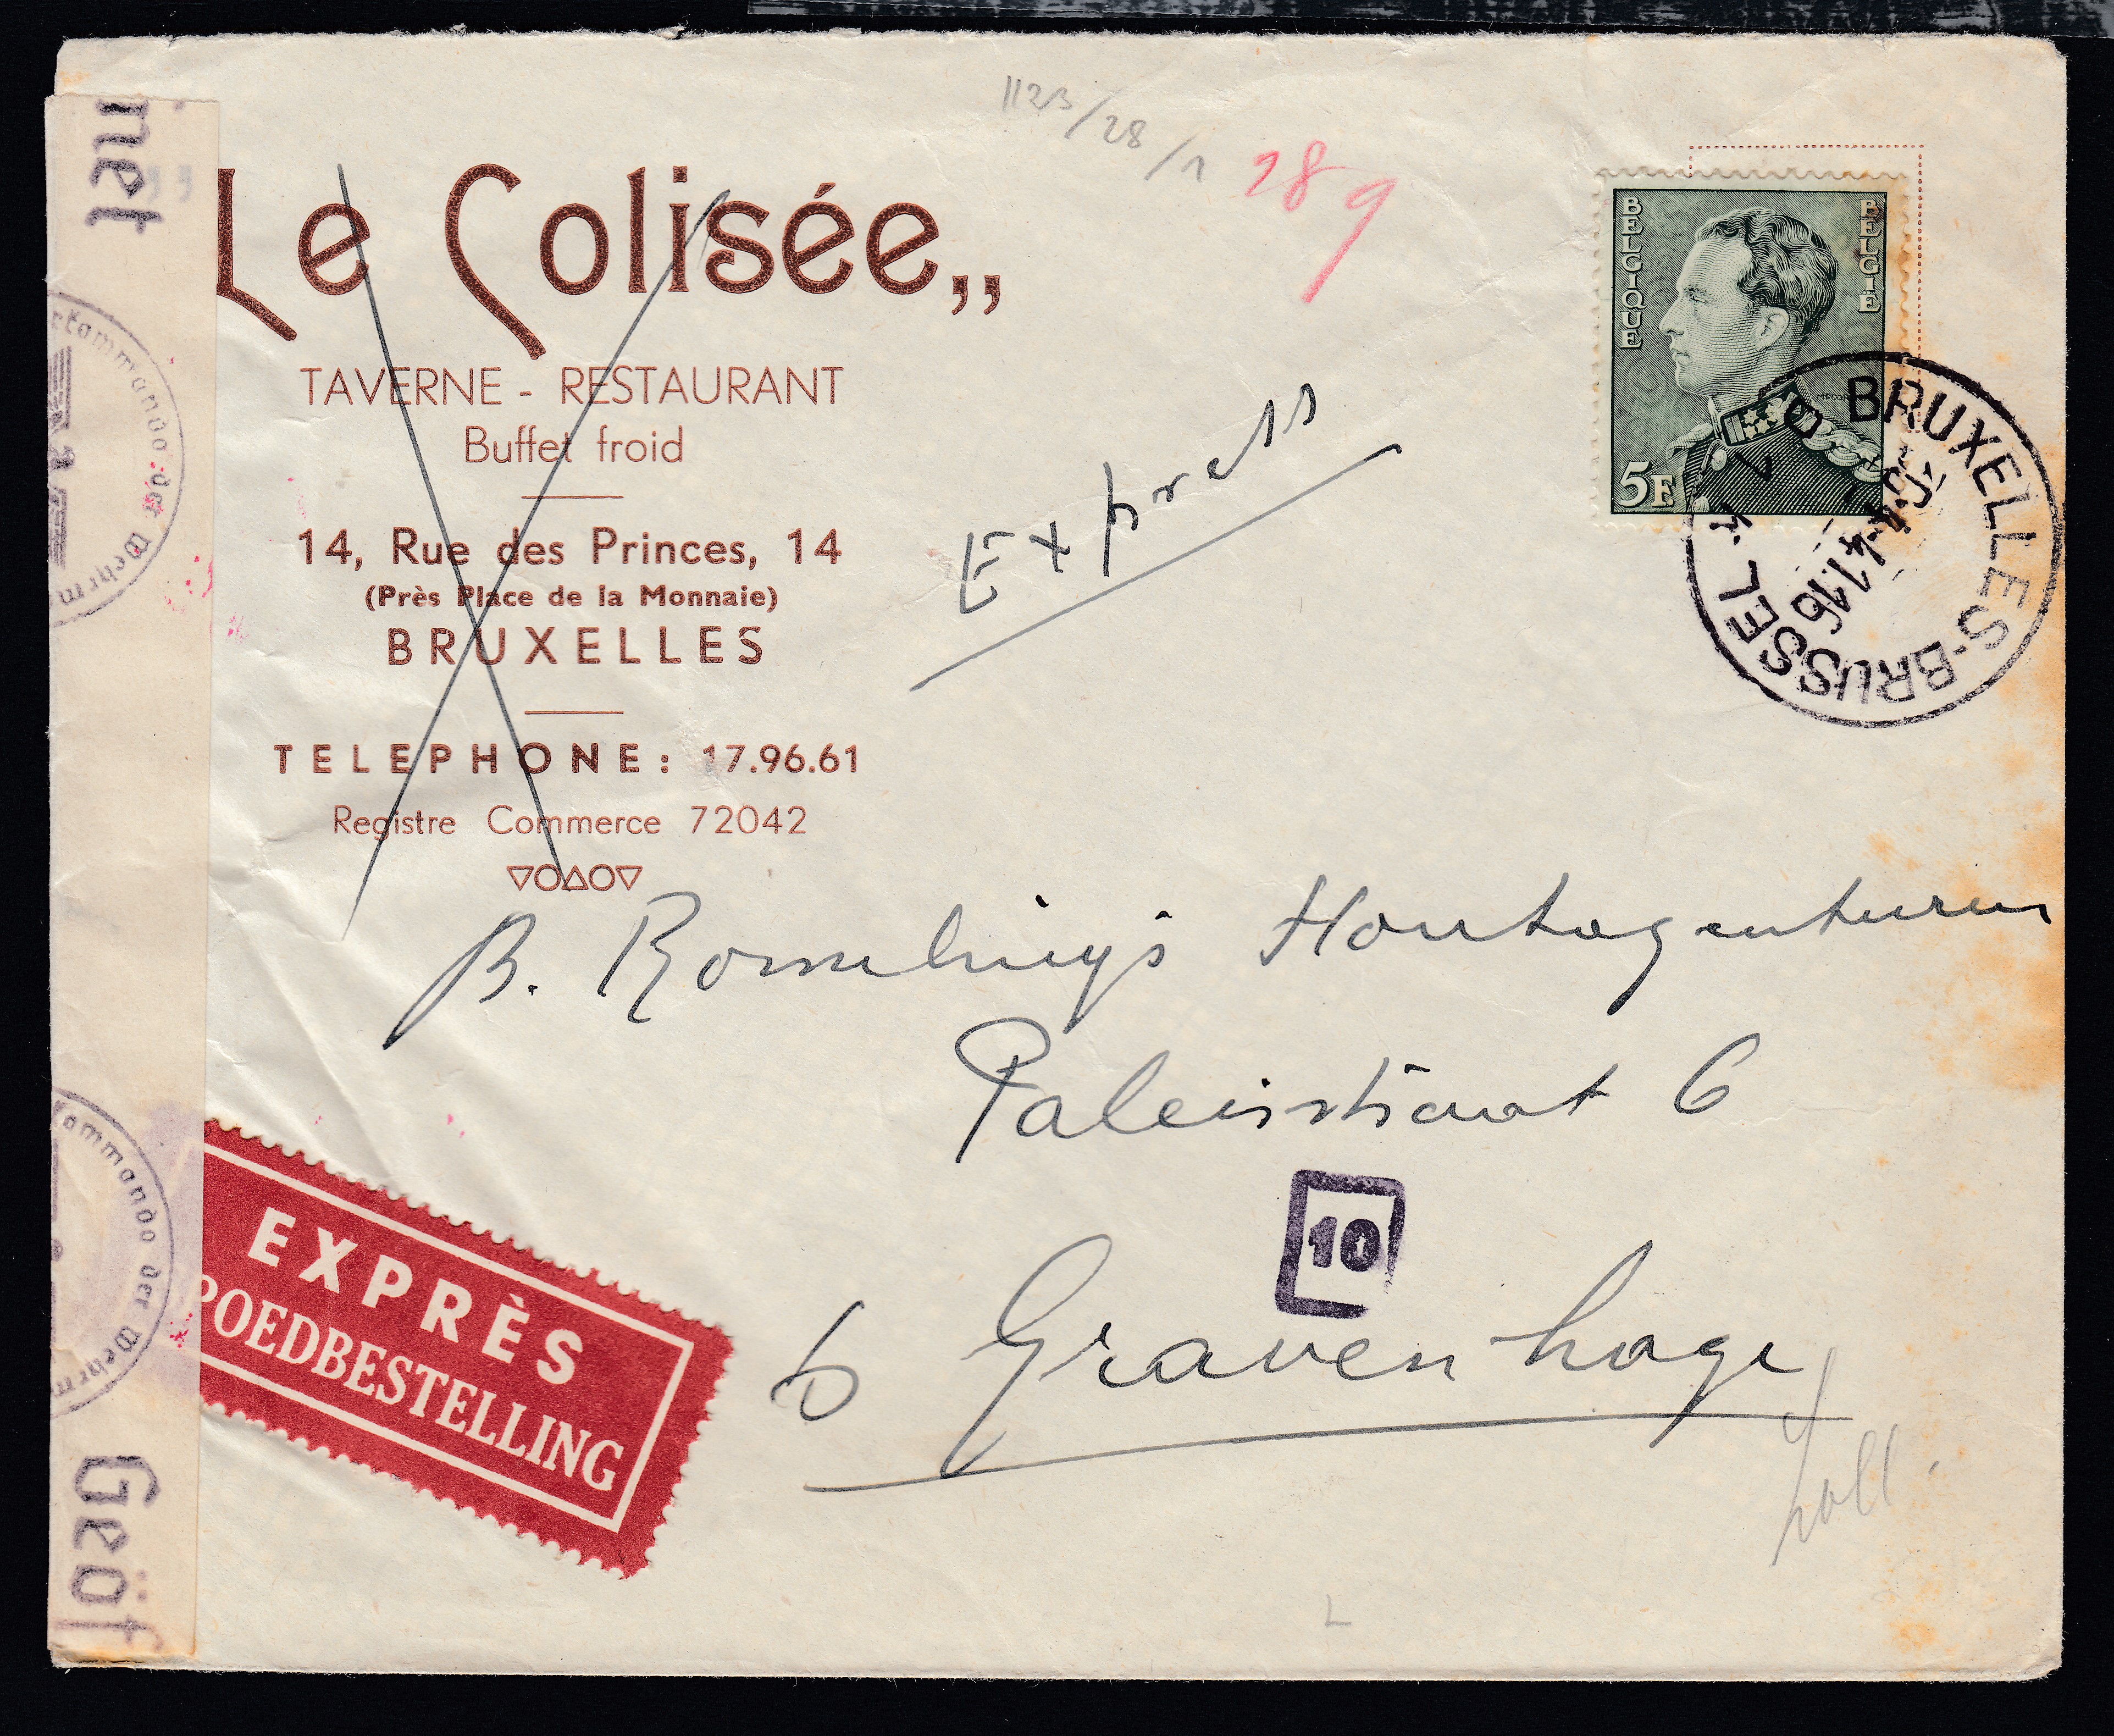 1123/28/1 289
„Le Colisée„
TAVERNE - RESTAURANT
Buffet froid
14, Rue des Princes, 14
(Près Place de la Monnaie)
BRUXELLES
TELEPHONE: 17.96.61
Registre Commerce 72042
Express
BELGIQUE
BELGIË
5F
BRUXELLES-BRUSSEL
41 16
B. Rommelings Houtagenturen
Paleisstraat 6
10
Gravenhage
EXPRÈS
POEDBESTELLING
net
kommando der Wehrm
kommando der Wehrm
Geöf